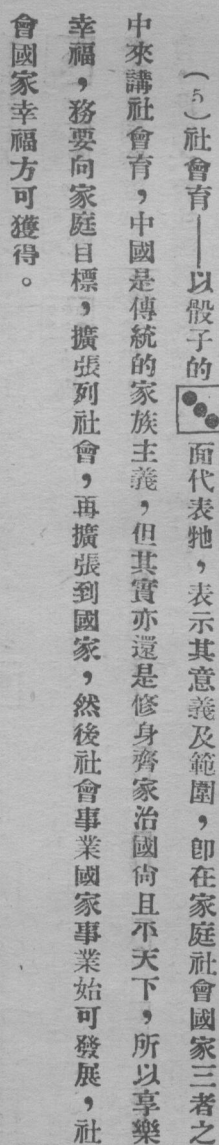 （5）社會育——以骰子的⚂面代表牠，表示其意義及範圍，卽在家庭社會國家三者之
中來講社會育，中國是傳統的家族主義，但其實亦還是修身齊家治國尙且不天下，所以享樂
幸福，務要向家庭目標，擴張列社會，再擴張到國家，然後社會事業國家事業始可發展，社
會國家幸福方可獲得。